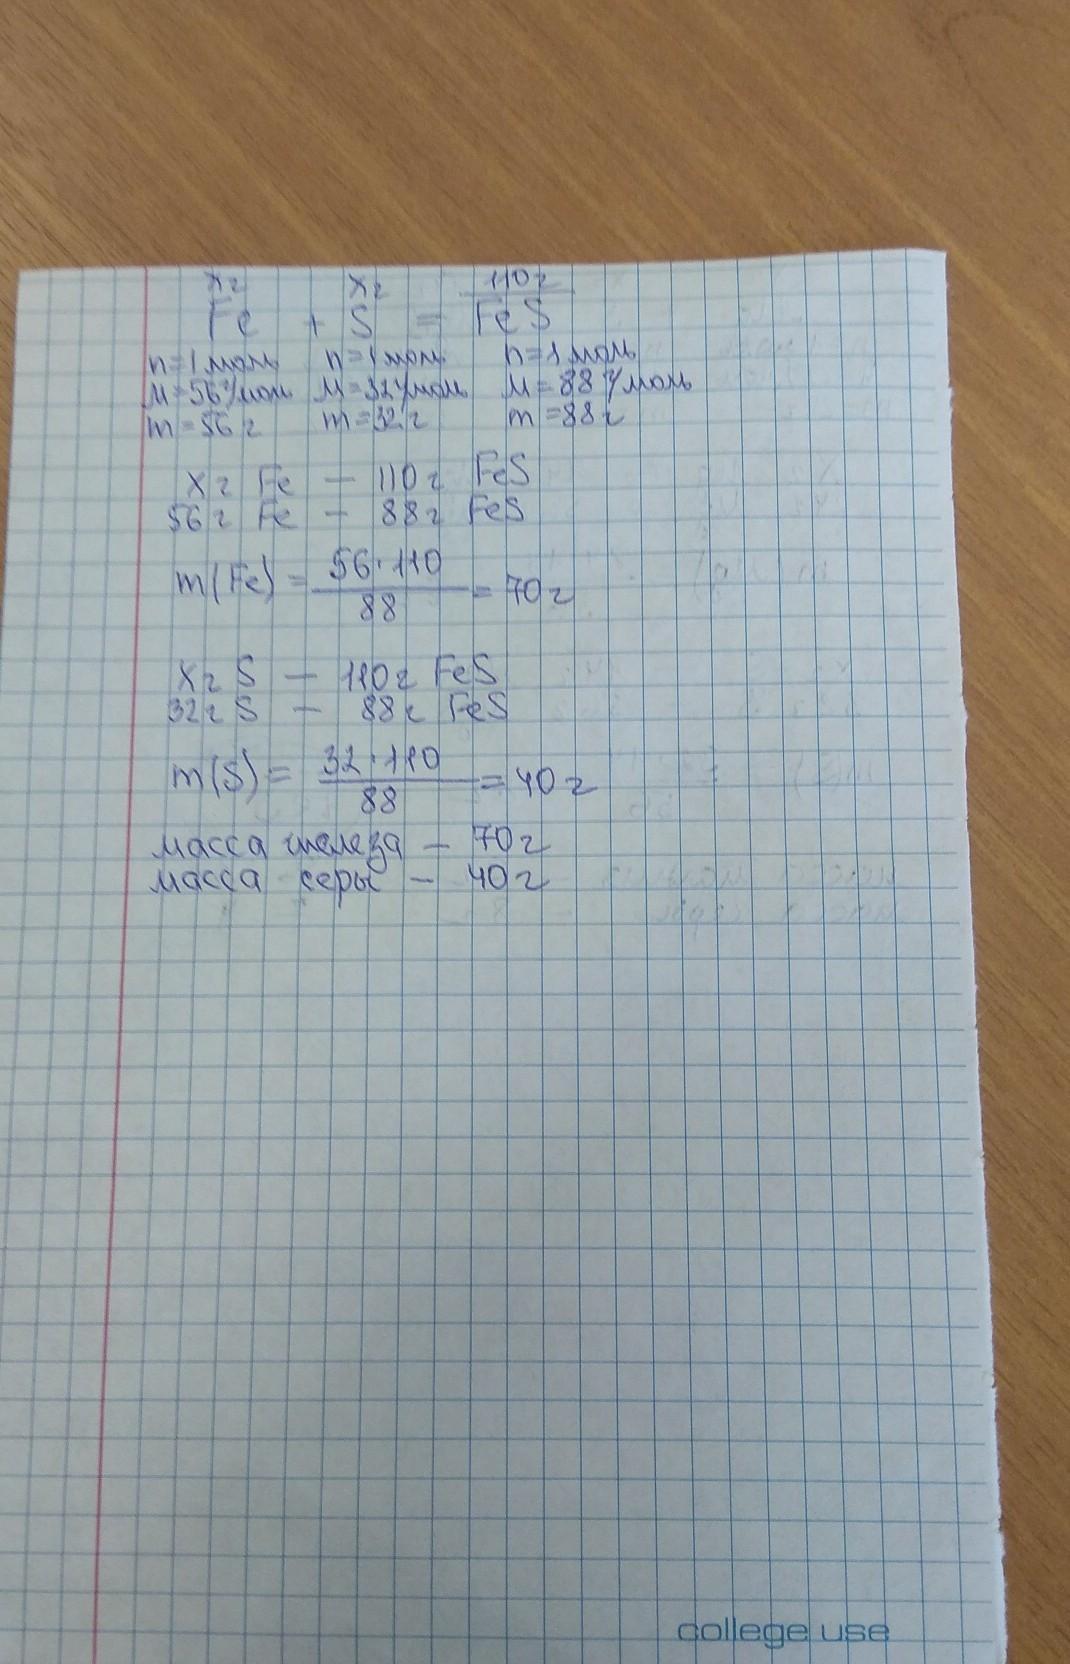 xг xг 110г
Fe + S = FeS
n=1моль n=1моль n=1моль
M=56г/моль M=32г/моль M=88г/моль
m=56г m=32г m=88г
xг Fe — 110г FeS
56г Fe — 88г FeS
m(Fe) = 56·110 / 88 = 70г
xг S — 110г FeS
32г S — 88г FeS
m(S) = 32·110 / 88 = 40г
масса железа — 70г
масса серы — 40г
college use